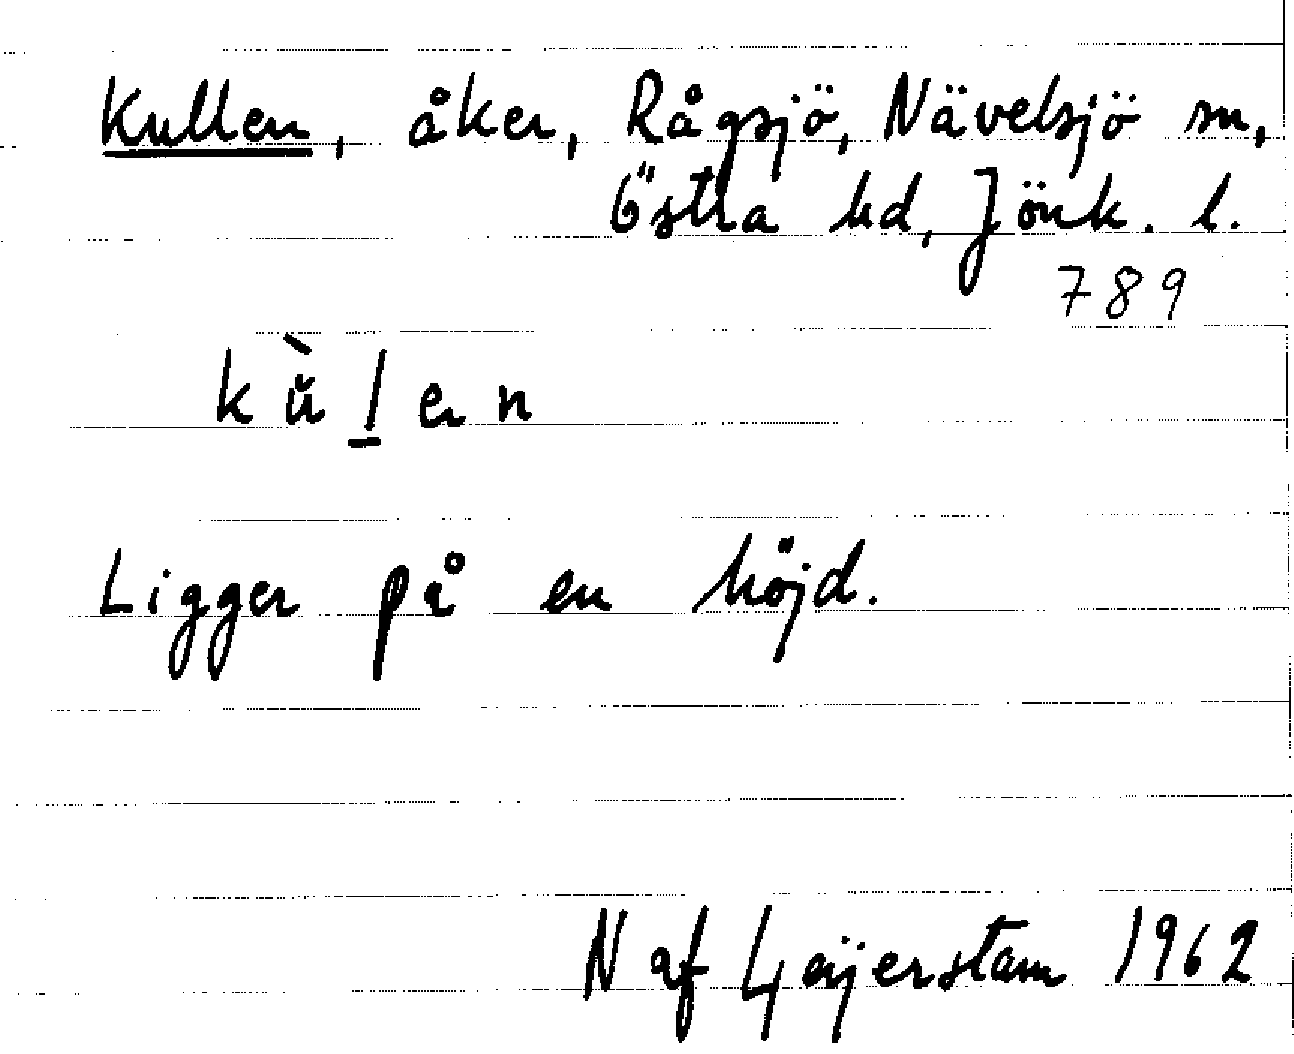 Kullen, åker, Rågsjö, Nävelsjö sn,
Östra hd, Jönk. l.
789
kù̆l̠en
Ligger på en höjd.
N af Geijerstam 1962